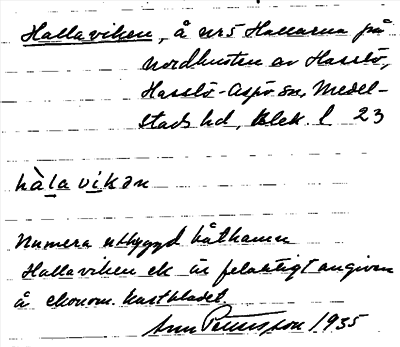 Hallaviken, å nr 5 Hallarna på
nordkusten av Hasslö,
Hasslö-Aspö sn, Medel-
stads hd, Blek. l 23
hàlavikən
Numera utbyggd båthamn
Hallaviken ek är felaktigt angiven
å ekonom. kartbladet.
Pettersson 1935